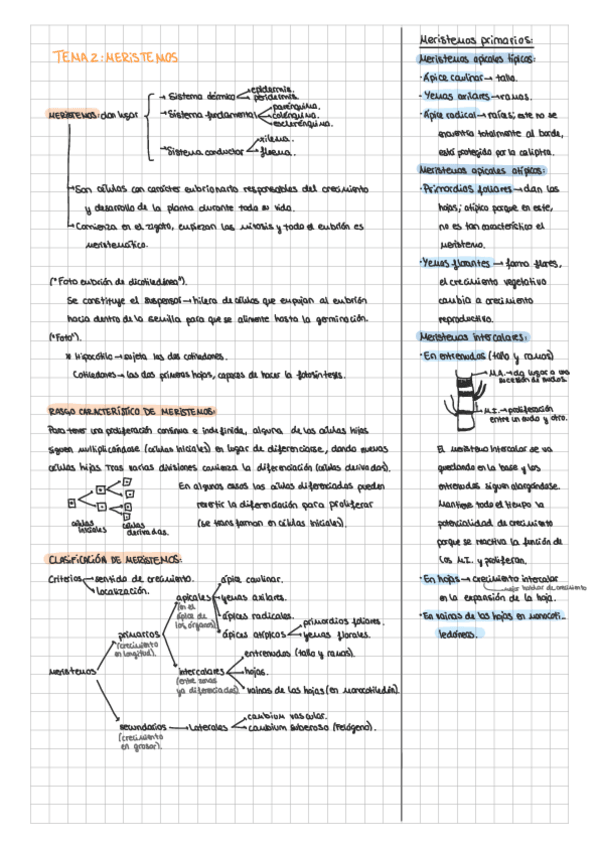 TEMA 2: MERISTEMOS
MERISTEMOS: dan lugar
→ Sistema dérmico → epidermis.
peridermis.
→ Sistema fundamental → parénquima.
colénquima.
esclerénquima.
→ Sistema conductor → xilema.
floema.
→ Son células con carácter embrionario responsables del crecimiento
y desarrollo de la planta durante toda su vida.
→ Comienza en el zigoto, empiezan las mitosis y todo el embrión es
meristemático.
("Foto embrión de dicotiledónea").
Se constituye el suspensor → hilera de células que empujan al embrión
hacia dentro de la semilla para que se alimente hasta la germinación.
("Foto").
* Hipocótilo → sujeta las dos cotiledones.
Cotiledones → las dos primeras hojas, capaces de hacer la fotosíntesis.
RASGO CARACTERÍSTICO DE MERISTEMOS:
Para tener una proliferación continua e indefinida, alguna de las células hijas
siguen multiplicándose (células iniciales) en lugar de diferenciarse, dando nuevas
células hijas tras varias divisiones comienza la diferenciación (células derivadas).
En algunos casos las células diferenciadas pueden
revertir la diferenciación para proliferar
(se transforman en células iniciales).
células
iniciales
células
derivadas.
CLASIFICACIÓN DE MERISTEMOS:
Criterios → sentido de crecimiento.
→ localización.
meristemos
primarios
(crecimiento
en longitud).
apicales
(en el
ápice de
los órganos).
ápice caulinar.
yemas axilares.
ápices radicales.
ápices atípicos → primordios foliares.
yemas florales.
intercalares
(entre zonas
ya diferenciadas)
entrenudos (tallo y ramas).
hojas.
vainas de las hojas (en monocotiledón).
secundarios
(crecimiento
en grosor).
→ Laterales → cambium vascular.
cambium suberoso (Felógeno).
Meristemos primarios:
Meristemos apicales típicos:
· Ápice caulinar → tallo.
· Yemas axilares → ramas.
· Ápice radical → raíces; este no se
encuentra totalmente al borde,
está protegido por la caliptra.
Meristemos apicales atípicos:
· Primordios foliares → dan las
hojas; atípico porque en este,
no es tan característico el
meristemo.
· Yemas florantes → forma flores,
el crecimiento vegetativo
cambia a crecimiento
reproductivo.
Meristemos intercalares:
· En entrenudos (tallo y ramas)
M.A. → da lugar a una
sucesión de nudos.
M.I. → proliferación
entre un nudo y otro.
El meristemo intercalar se va
quedando en la base y los
entrenudos siguen alargándose.
Mantiene todo el tiempo la
potencialidad de crecimiento
porque se reactiva la función de
los M.I. y proliferan.
· En hojas → crecimiento intercalar
en la expansión de la hoja.
· En vainas de las hojas en monocoti-
ledóneas.